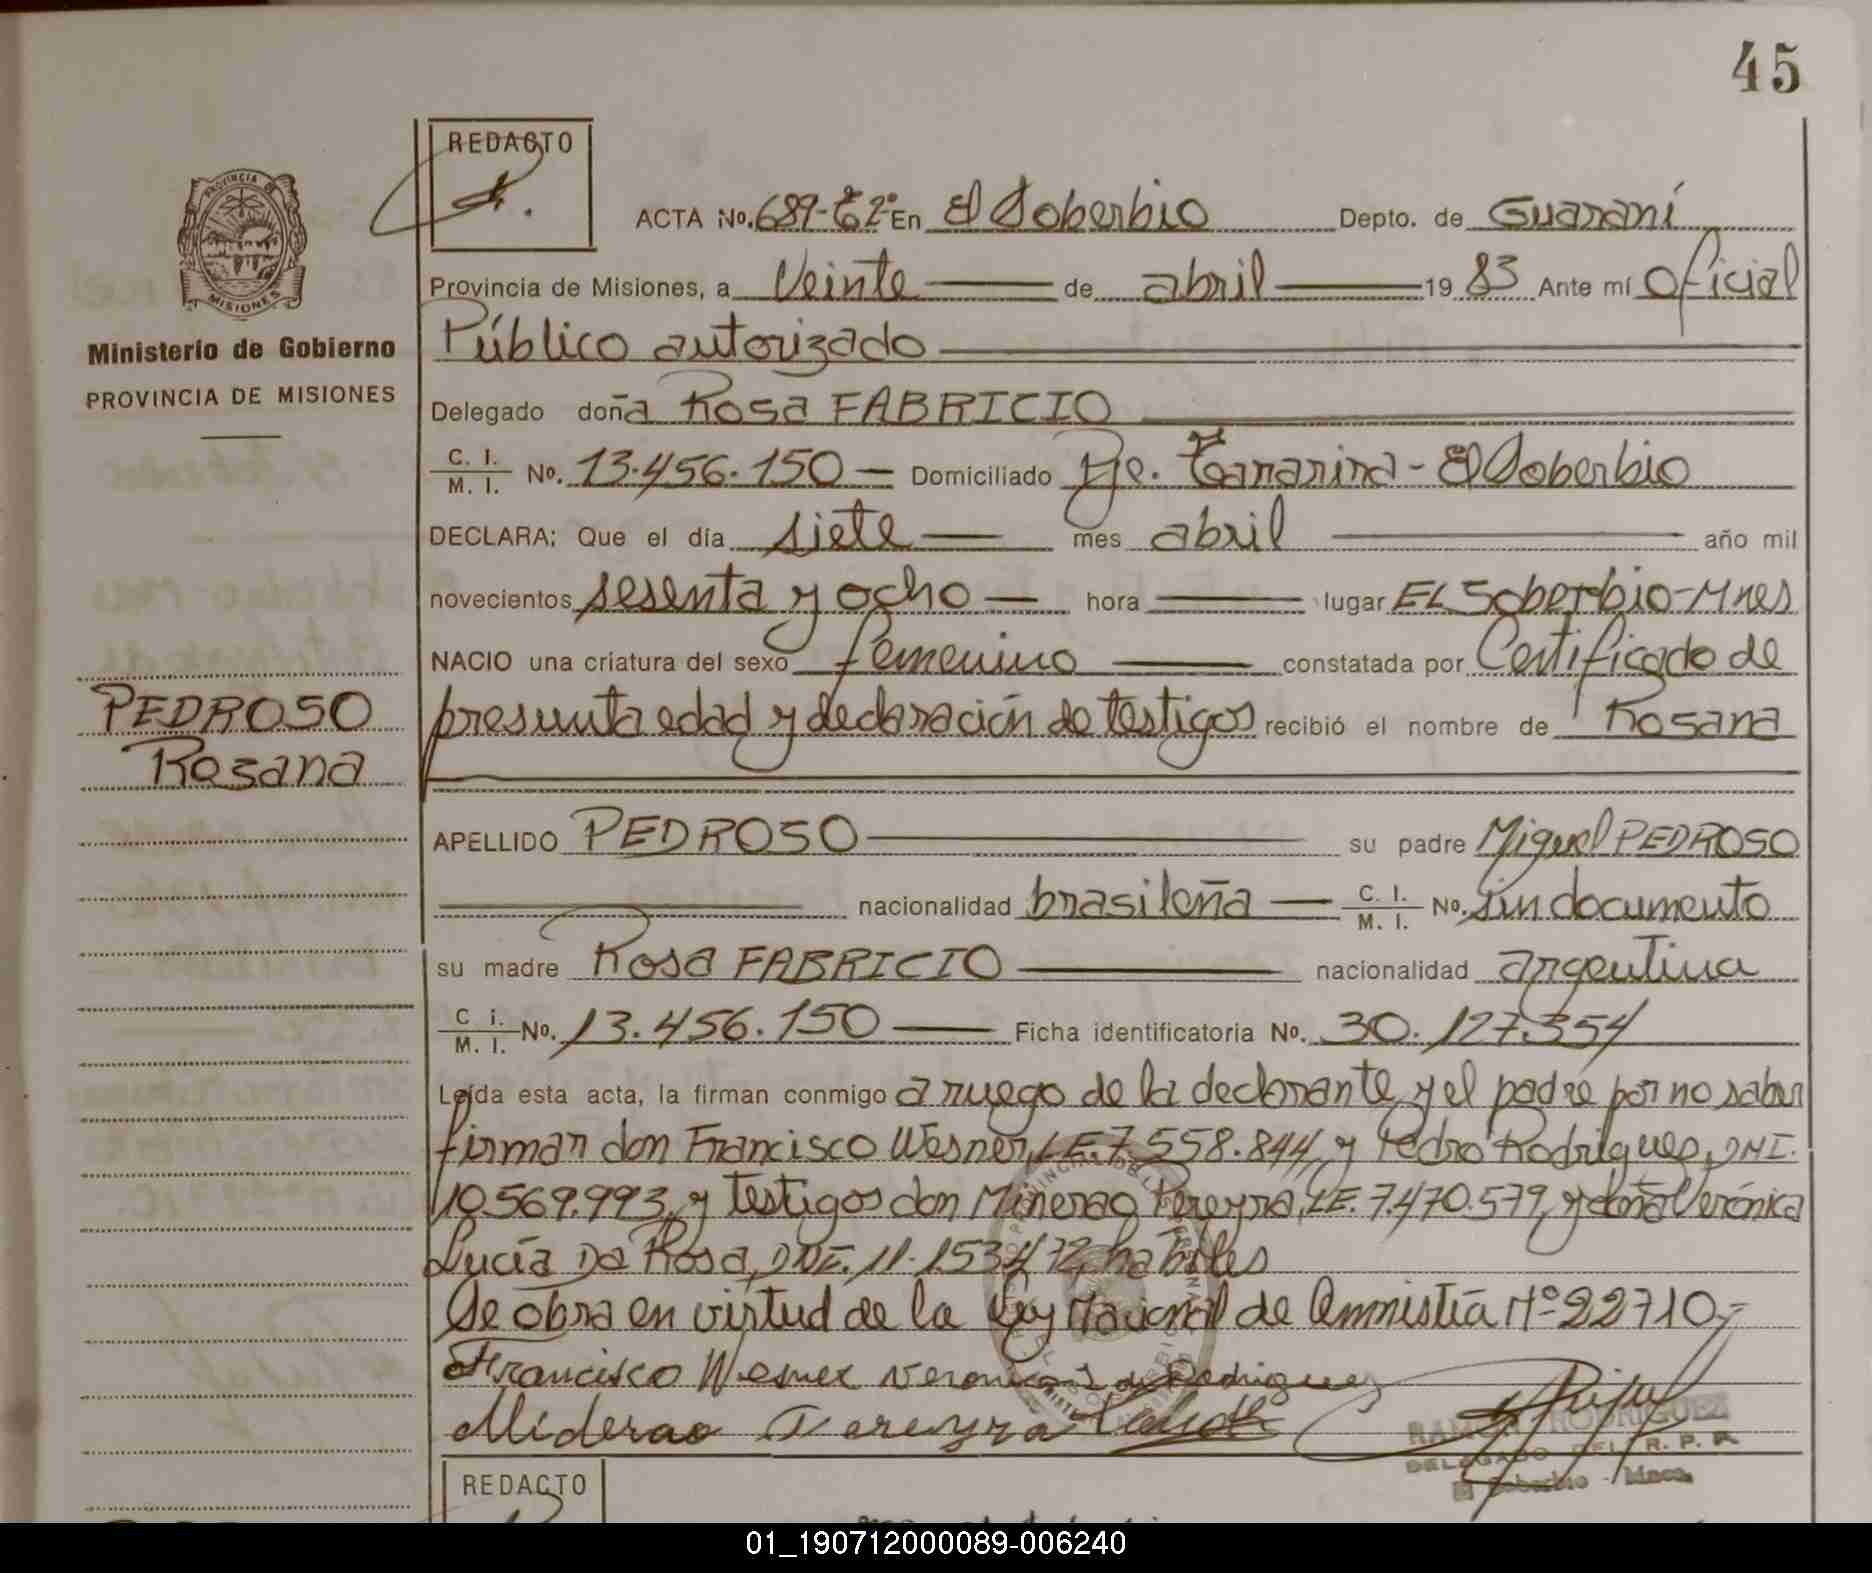 45
REDACTO
ACTA Nº. 689-Tº2º En El Soberbio Depto. de Guaraní
Provincia de Misiones, a Veinte de abril 1983 Ante mí Oficial
Público autorizado
Ministerio de Gobierno
PROVINCIA DE MISIONES
Delegado doña Rosa FABRICIO
C. I. / M. I. Nº. 13.456.150 Domiciliado Pje. - El Soberbio
DECLARA: Que el día siete mes abril año mil
novecientos sesenta y ocho hora lugar EL Soberbio-Mnes
NACIO una criatura del sexo femenino constatada por Certificado de
presunta edad y declaración de testigos recibió el nombre de Rosana
PEDROSO
Rosana
APELLIDO PEDROSO su padre Miguel PEDROSO
nacionalidad brasileña C. I. / M. I. Nº. sin documento
su madre Rosa FABRICIO nacionalidad argentina
C i. / M. I. Nº. 13.456.150 Ficha identificatoria Nº. 30.127.354
Leída esta acta, la firman conmigo a ruego de la declarante y el padre por no saber
firmar don Francisco Wesner, LE.7.558.844, y Pedro Rodrigues, DNI.
10.569.993, y testigos don Minerao Pereyra, LE. 7.470.579, y doña Verónica
Lucía Da Rosa, DNI. 11.153.472, hábiles
Se obra en virtud de la Ley Nacional de Amnistía Nº 22710,-
Francisco Wesner Veronica de Rodriguez
Miderao Pereyra
RAMON RODRIGUEZ
DELEGADO DEL R. P. P.
El Soberbio - Mnes.
REDACTO
01_190712000089-006240